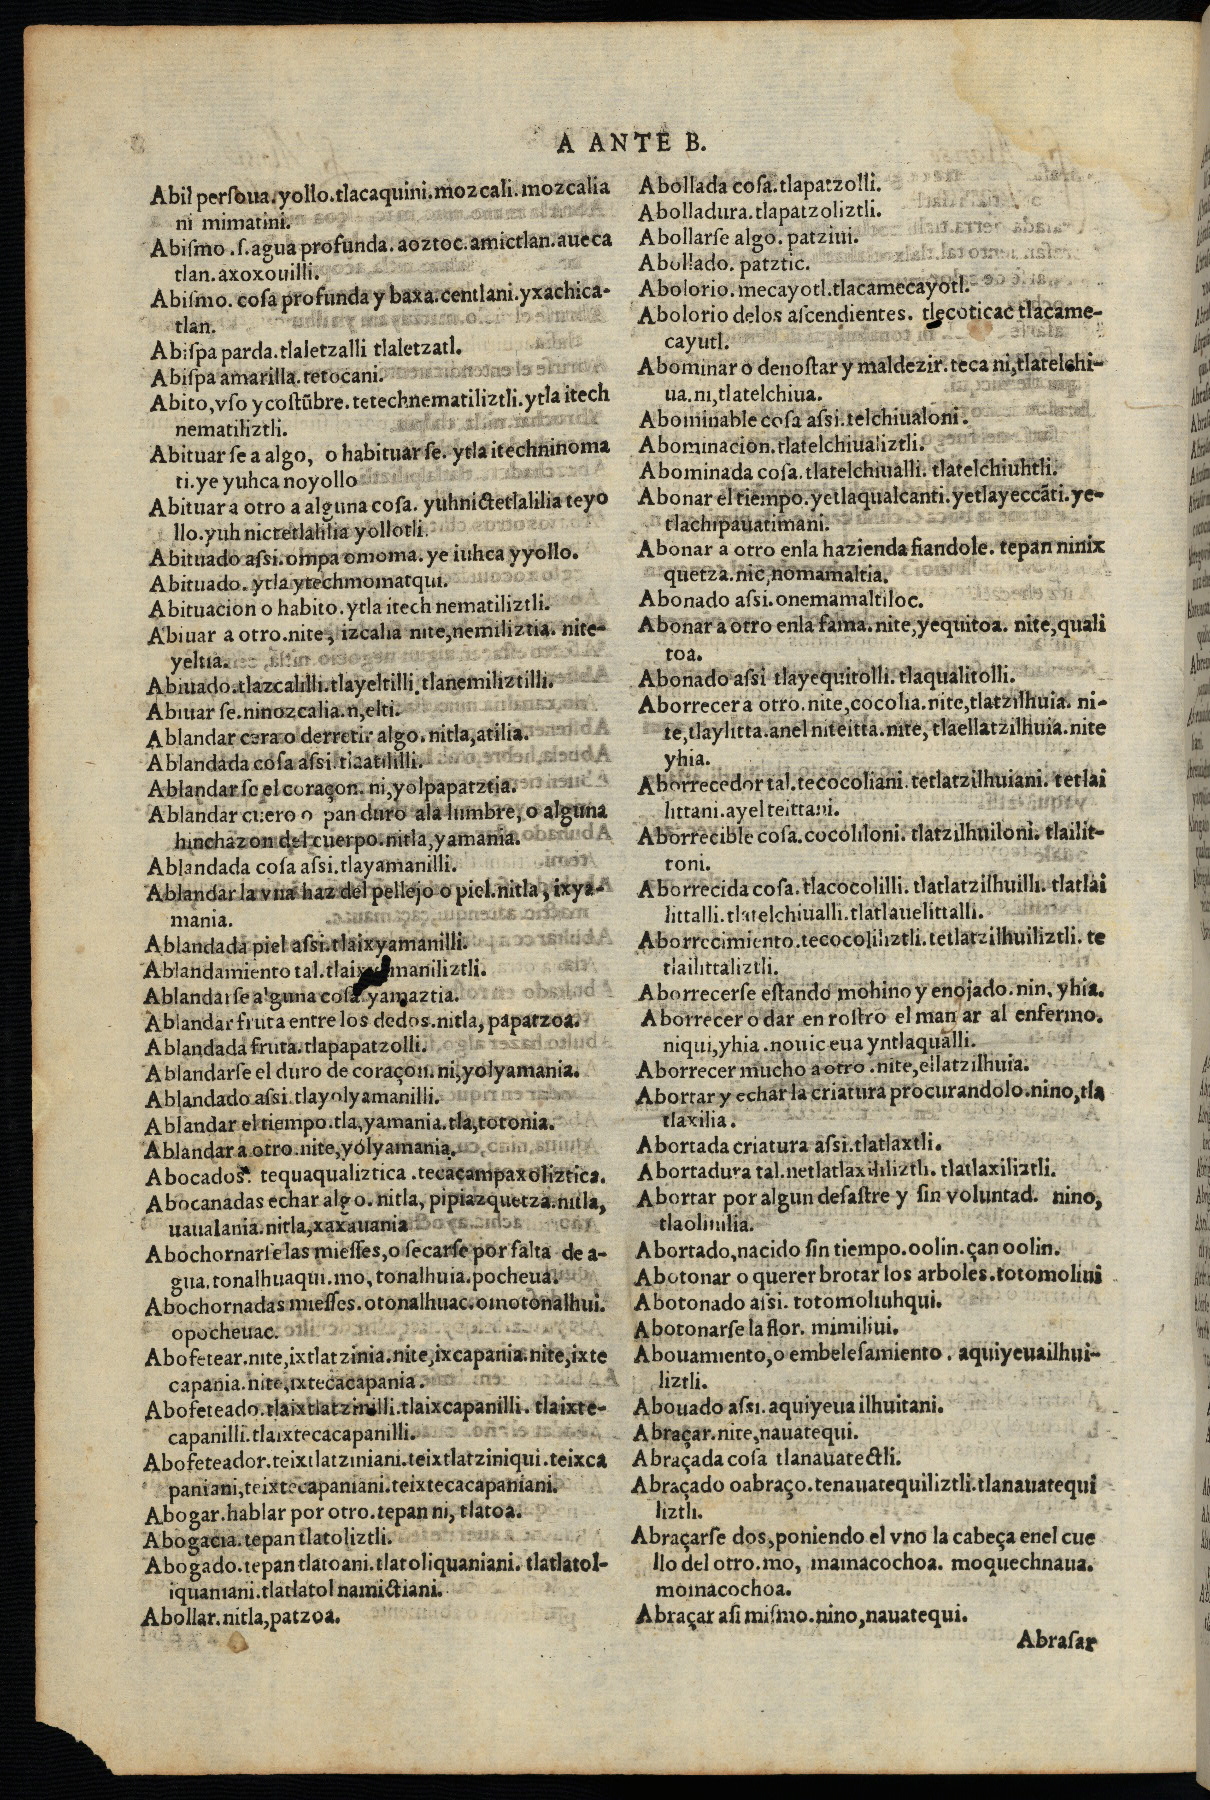 A ANTE B.
Abil persoua. yollo. tlacaquini. mozcali. mozcalia
ni mimatini.
Abismo .s. agua profunda. aoztoc. amictlan. aueca
tlan. axoxouilli.
Abismo. cosa profunda y baxa. centlani. yxachica-
tlan.
Abispa parda. tlaletzalli tlaletzatl.
Abispa amarilla. tetocani.
Abito, vso y costũbre. tetechnematiliztli. ytla itech
nematiliztli.
Abituar se a algo, o habituar se. ytla itechninoma
ti. ye yuhca noyollo
Abituar a otro a alguna cosa. yuhnictetlalilia teyo
llo. yuh nictetlalilia yollotli.
Abituado assi. ompa omoma. ye iuhca yyollo.
Abituado. ytla ytechmomatqui.
Abituacion o habito. ytla itech nematiliztli.
Abiuar a otro. nite, izcalia nite, nemiliztia. nite-
yeltia.
Abiuado. tlazcalilli. tlayeltilli. tlanemiliztilli.
Abiuar se. ninozcalia. n, elti.
Ablandar cera o derretir algo. nitla, atilia.
Ablandada cosa assi. tlaatililli.
Ablandar se el coraçon. ni, yolpapatztia.
Ablandar cuero o pan duro ala lumbre, o alguna
hinchazon del cuerpo. nitla, yamania.
Ablandada cosa assi. tlayamanilli.
Ablandar la vna haz del pellejo o piel. nitla, ixya-
mania.
Ablandada piel assi. tlaixyamanilli.
Ablandamiento tal. maniliztli.
Ablandarse alguna cosa. yamaztia.
Ablandar fruta entre los dedos. nitla, papatzoa.
Ablandada fruta. tlapapatzolli.
Ablandarse el duro de coraçon. ni, yolyamania.
Ablandado assi. tlayolyamanilli.
Ablandar el tiempo. tla, yamania. tla, totonia.
Ablandar a otro. nite, yolyamania.
Abocados. tequaqualiztica . tecacampaxoliztica.
Abocanadas echar algo. nitla, pipiazquetza. nitla,
uaualania. nitla, xaxauania
Abochornarse las miesses, o secarse por falta de a-
gua. tonalhuaqui. mo, tonalhuia. pocheua.
Abochornadas miesses. otonalhuac. omotonalhui.
opocheuac.
Abofetear. nite, ixtlatzinia. nite, ixcapania. nite, ixte
capania. nite, ixtecacapania.
Abofeteado. tlaixtlatzinilli. tlaixcapanilli. tlaixte-
capanilli. tlaixtecacapanilli.
Abofeteador. teixtlatziniani. teixtlatziniqui. teixca
paniani, teixtecapaniani. teixtecacapaniani.
Abogar. hablar por otro. tepan ni, tlatoa.
Abogacia. tepan tlatoliztli.
Abogado. tepan tlatoani. tlatoliquaniani. tlatlatol-
iquaniani. tlatlatol namictiani.
Abollar. nitla, patzoa.
Abollada cosa. tlapatzolli.
Abolladura. tlapatzoliztli.
Abollarse algo. patziui.
Abollado. patztic.
Abolorio. mecayotl. tlacamecayotl.
Abolorio delos ascendientes. tlecoticac tlacame-
cayutl.
Abominar o denostar y maldezir. teca ni, tlatelchi-
ua. ni, tlatelchiua.
Abominable cosa assi. telchiualoni.
Abominacion. tlatelchiualiztli.
Abominada cosa. tlatelchiualli. tlatelchiuhtli.
Abonar el tiempo. yetlaqualcanti. yetlayeccãti. ye-
tlachipauatimani.
Abonar a otro enla hazienda fiandole. tepan ninix
quetza. nic, nomamaltia.
Abonado assi. onemamaltiloc.
Abonar a otro enla fama. nite, yequitoa. nite, quali
toa.
Abonado assi tlayequitolli. tlaqualitolli.
Aborrecer a otro. nite, cocolia. nite, tlatzilhuia. ni-
te, tlaylitta. anel niteitta. nite, tlaellatzilhuia. nite
yhia.
Aborrecedor tal. tecocoliani. tetlatzilhuiani. tetlai
littani. ayel teittani.
Aborrecible cosa. cocoliloni. tlatzilhuiloni. tlailit-
toni.
Aborrecida cosa. tlacocolilli. tlatlatzilhuilli. tlatlai
littalli. tlatelchiualli. tlatlauelittalli.
Aborrecimiento. tecocoliliztli. tetlatzilhuiliztli. te
tlailittaliztli.
Aborrecerse estando mohino y enojado. nin, yhia.
Aborrecer o dar en rostro el manjar al enfermo.
niqui, yhia . nouic eua yntlaqualli.
Aborrecer mucho a otro . nite, ellatzilhuia.
Abortar y echar la criatura procurandolo. nino, tla
tlaxilia.
Abortada criatura assi. tlatlaxtli.
Abortadura tal. netlatlaxililiztli. tlatlaxiliztli.
Abortar por algun desastre y sin voluntad. nino,
tlaolinilia.
Abortado, nacido sin tiempo. oolin. çan oolin.
Abotonar o querer brotar los arboles. totomoliui
Abotonado assi. totomoliuhqui.
Abotonarse la flor. mimiliui.
Abouamiento, o embelesamiento . aquiyeuailhui-
liztli.
Abouado assi. aquiyeua ilhuitani.
Abraçar. nite, nauatequi.
Abraçada cosa tlanauatectli.
Abraçado oabraço. tenauatequiliztli. tlanauatequi
liztli.
Abraçarse dos, poniendo el vno la cabeça enel cue
llo del otro. mo, mamacochoa. moquechnaua.
momacochoa.
Abraçar asi mismo. nino, nauatequi.
Abrasar